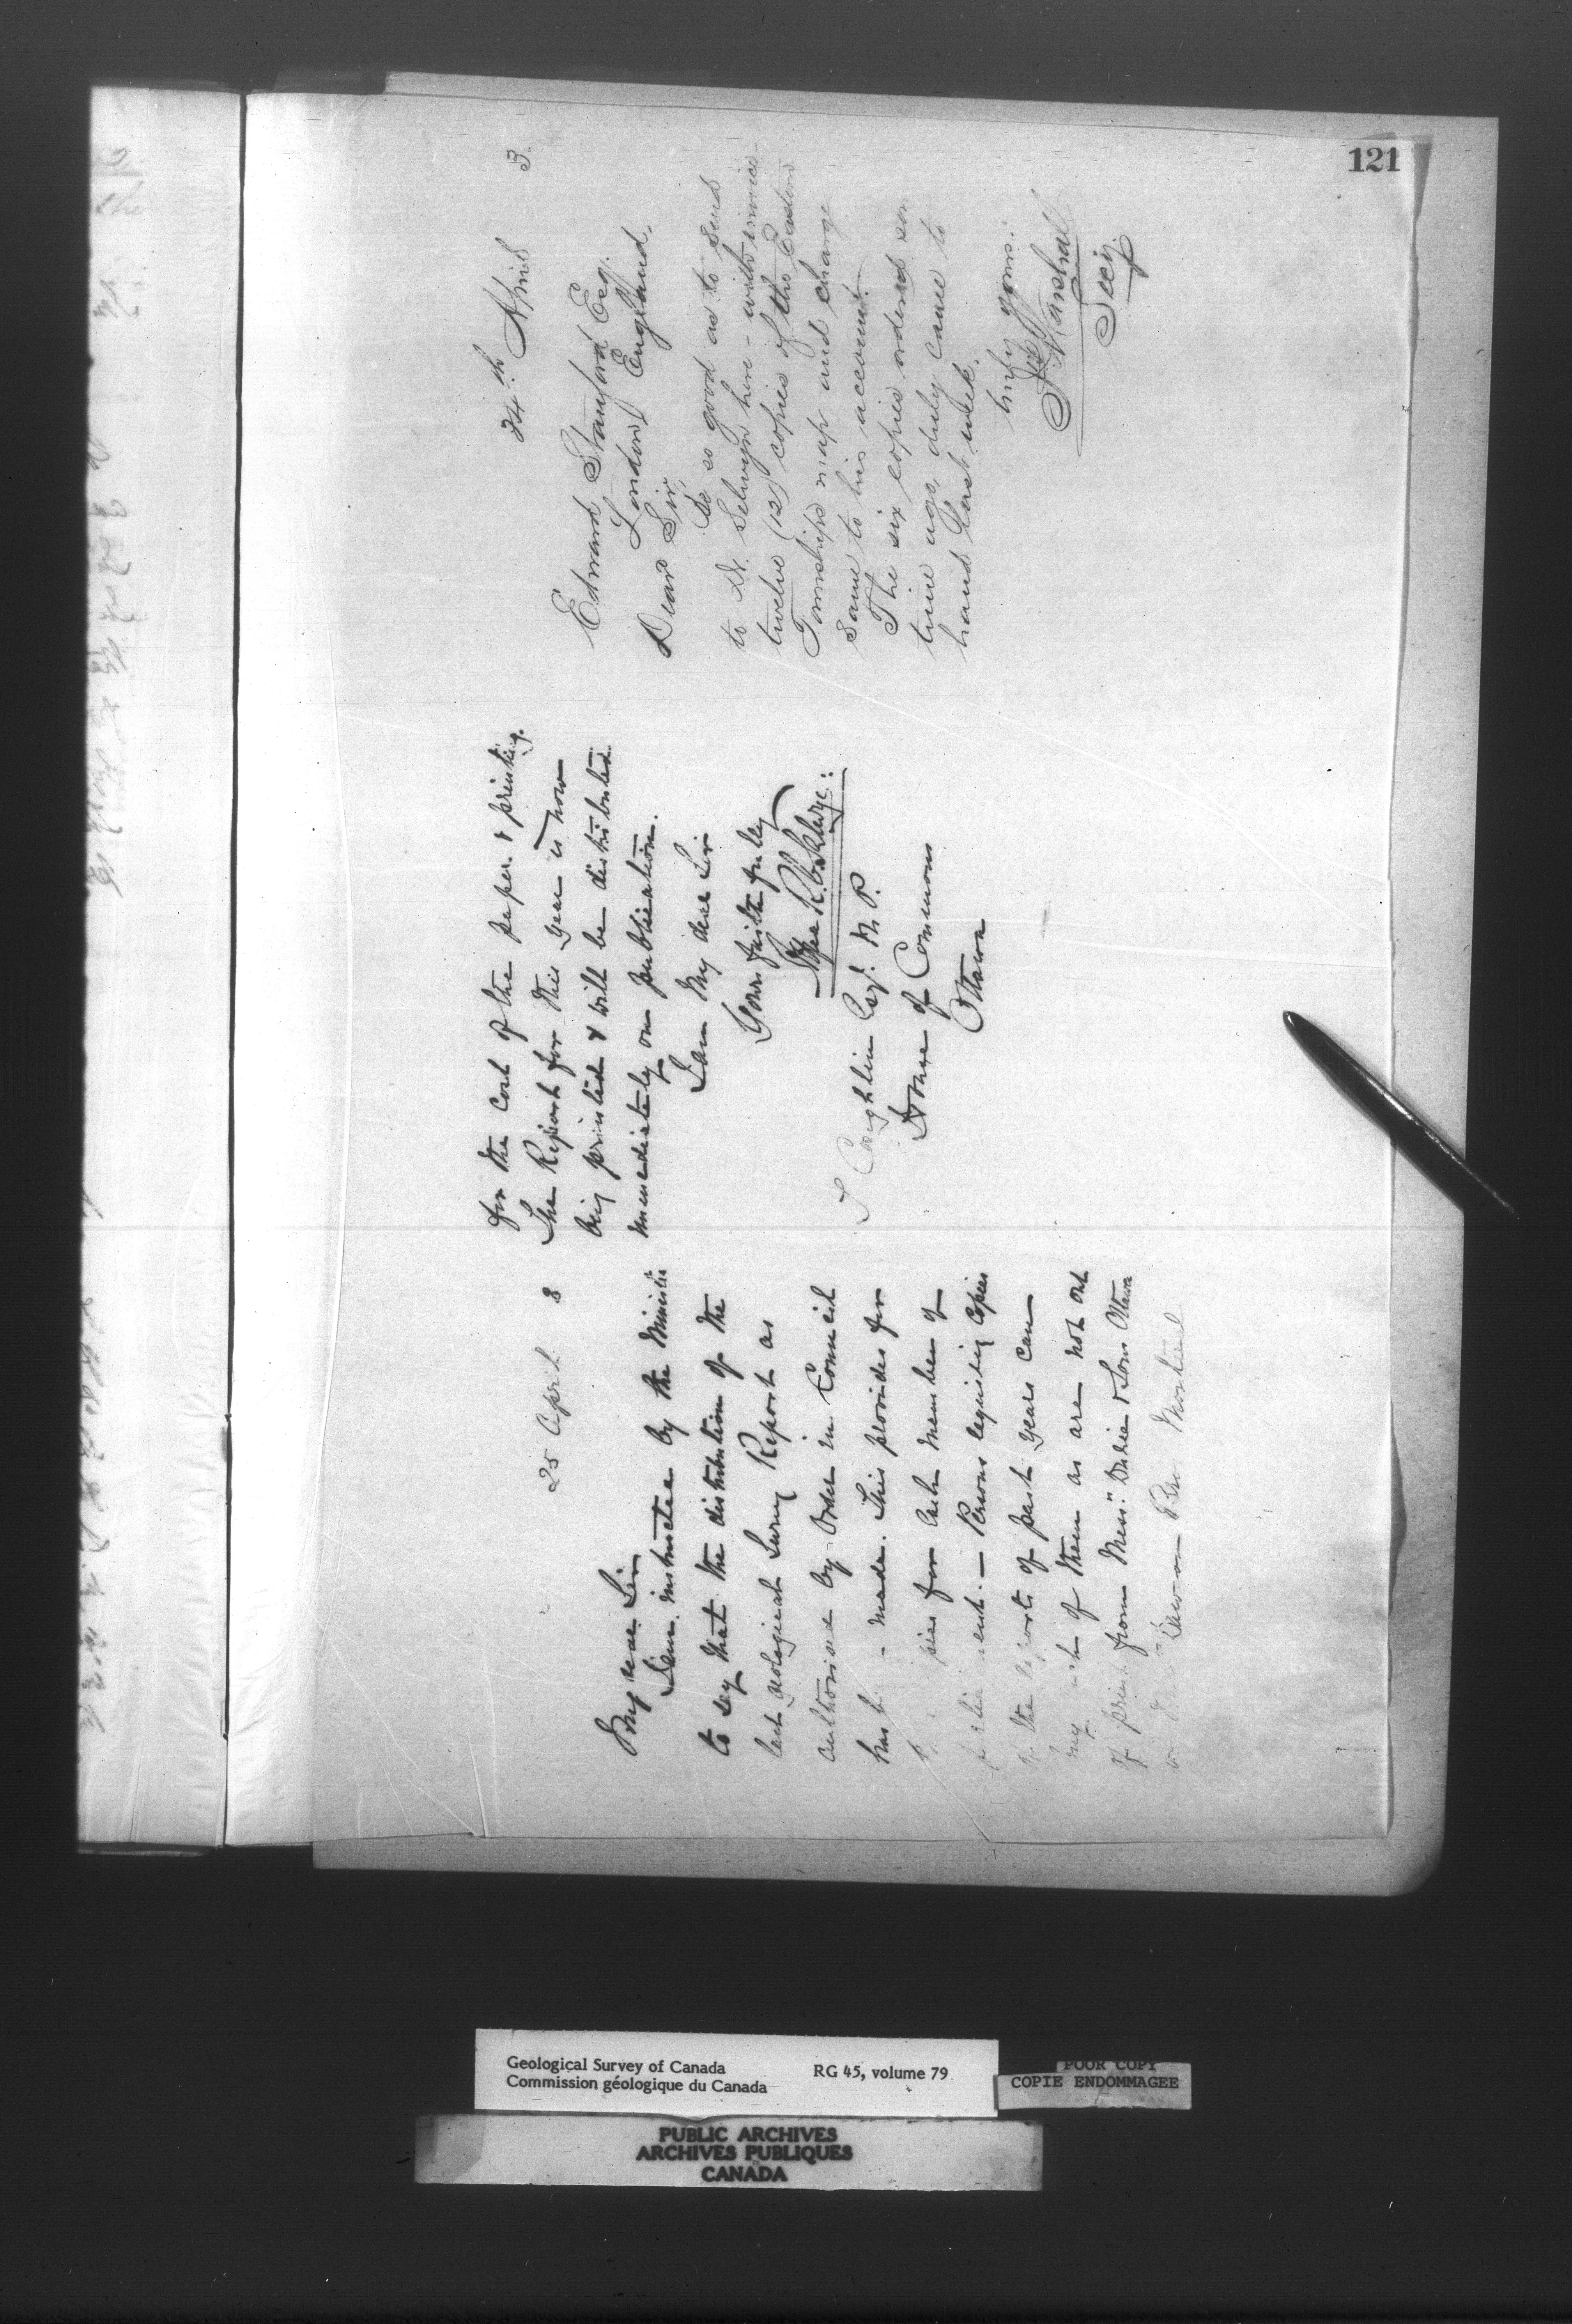 121
25 April 8
My dear Sir
I am instructed by the Minister
to say that the distribution of the
last Geological Survey Report as
authorised by Order in Council
has b made. This provides for
for each member of
Persons requiring copies
of the reports of past years can
of them as are not out
of print from Mess. Durie & Sons Ottawa
or Dawson Bro Montreal
for the cost of the paper & printing.
The Report for this year is now
being printed & will be distributed
immediately on publication.
I am My dear Sir
Yours faithfully
T Coughlin Esq. M.P.
House of Commons
Ottawa
24th April 3.
Edward Stanford Esq.
London, England.
Dear Sir,
Be so good as to send
to Dr. Selwyn here - with invoice -
twelve (12) copies of the Eastern
Townships map and charge
same to his account.
The six copies ordered som
time ago, duly came to
hand last week.
truly yours:
J Marshall
Secy.
Geological Survey of Canada RG 45, volume 79
Commission géologique du Canada
POOR COPY
COPIE ENDOMMAGEE
PUBLIC ARCHIVES
ARCHIVES PUBLIQUES
CANADA